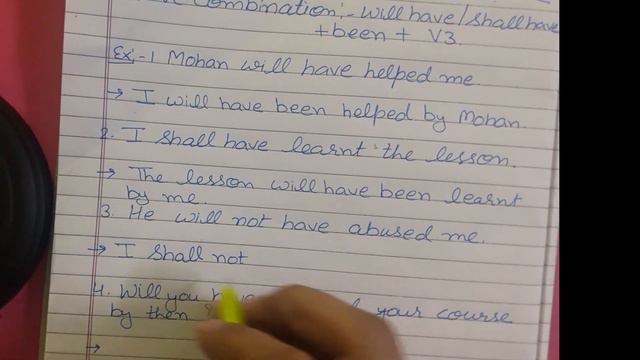 Combination:- will have/shall have
+been + V3.
Ex:-1 Mohan will have helped me.
→ I will have been helped by Mohan.
2. I shall have learnt the lesson.
→ The lesson will have been learnt
by me.
3. He will not have abused me.
→ I shall not
4. Will you your course
by then
→